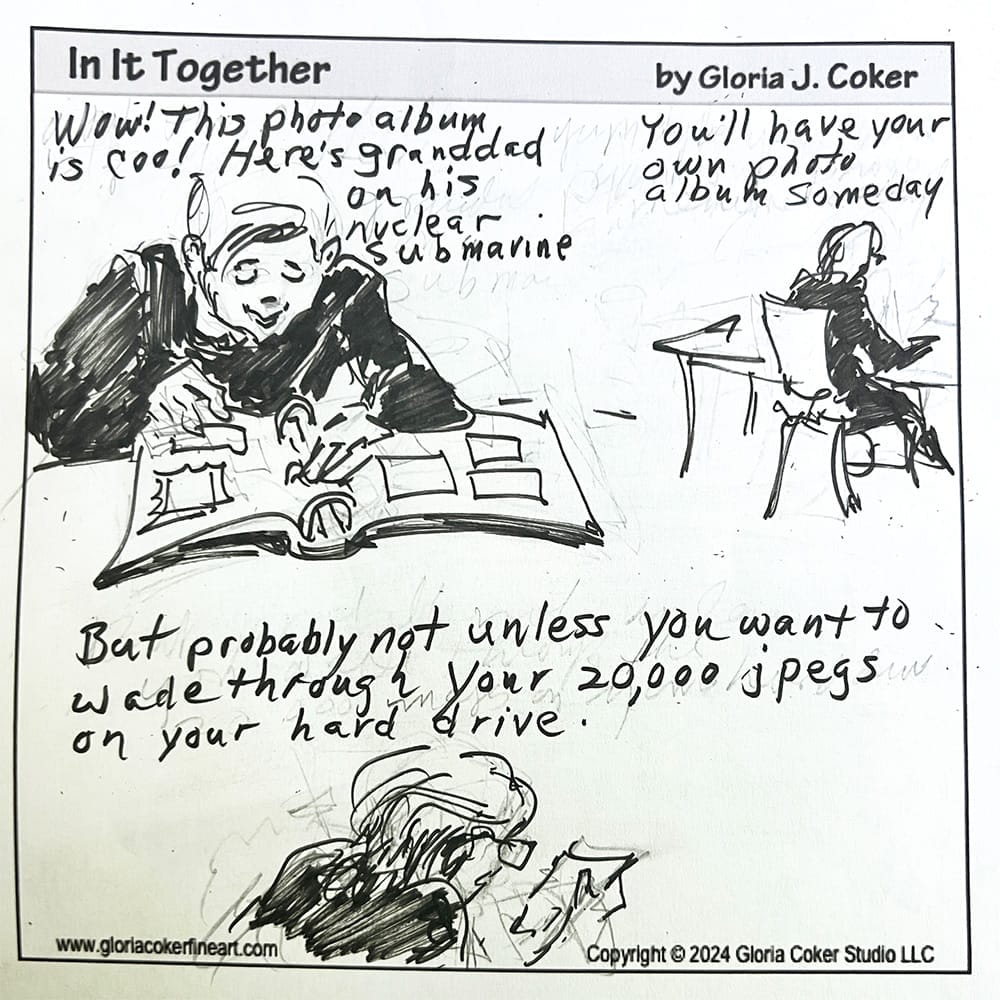 In It Together
by Gloria J. Coker
Wow! This photo album
is cool Here's granddad
on his
nuclear
submarine
You'll have your
own photo
album someday
But probably not unless you want to
wade through your 20,000 jpegs
on your hard drive.
www.gloriacokerfineart.com
Copyright © 2024 Gloria Coker Studio LLC